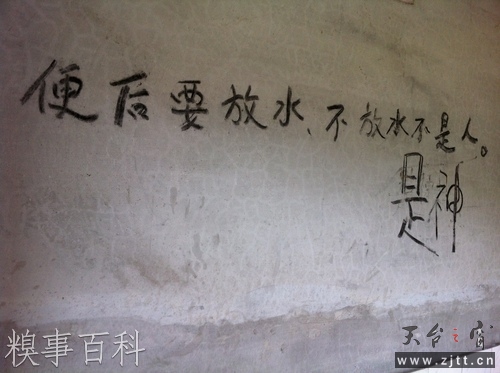 便后要放水、不放水不是人。
是神
糗事百科
天台之窗
www.zjtt.cn